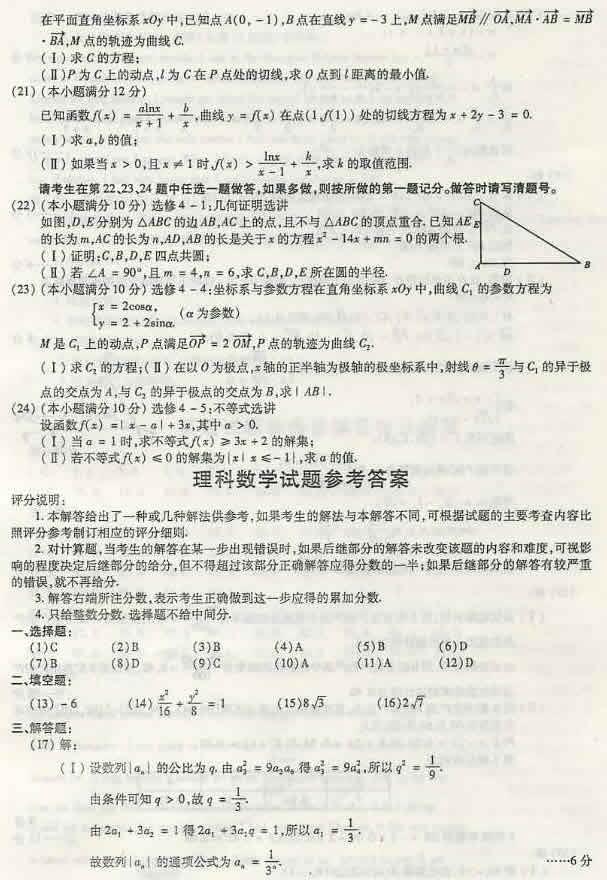 在平面直角坐标系xOy中,已知点A(0,-1),B点在直线y=-3上,M点满足MB∥OA,MA·AB=MB
·BA,M点的轨迹为曲线C.
(Ⅰ)求C的方程;
(Ⅱ)P为C上的动点,l为C在P点处的切线,求O点到l距离的最小值.
(21)(本小题满分12分)
已知函数f(x)=alnx/(x+1)+b/x,曲线y=f(x)在点(1,f(1))处的切线方程为x+2y-3=0.
(Ⅰ)求a,b的值;
(Ⅱ)如果当x>0,且x≠1时,f(x)>lnx/(x-1)+k/x,求k的取值范围.
请考生在第22、23、24题中任选一题做答,如果多做,则按所做的第一题记分。做答时请写清题号。
(22)(本小题满分10分)选修4-1:几何证明选讲
如图,D,E分别为△ABC的边AB,AC上的点,且不与△ABC的顶点重合.已知AE
的长为m,AC的长为n,AD,AB的长是关于x的方程x²-14x+mn=0的两个根.
(Ⅰ)证明:C,B,D,E四点共圆;
(Ⅱ)若∠A=90°,且m=4,n=6,求C,B,D,E所在圆的半径.
C
E
A D B
(23)(本小题满分10分)选修4-4:坐标系与参数方程在直角坐标系xOy中,曲线C₁的参数方程为
{x=2cosα,
y=2+2sinα. (α为参数)
M是C₁上的动点,P点满足OP=2OM,P点的轨迹为曲线C₂.
(Ⅰ)求C₂的方程;(Ⅱ)在以O为极点,x轴的正半轴为极轴的极坐标系中,射线θ=π/3与C₁的异于极
点的交点为A,与C₂的异于极点的交点为B,求|AB|.
(24)(本小题满分10分)选修4-5:不等式选讲
设函数f(x)=|x-a|+3x,其中a>0.
(Ⅰ)当a=1时,求不等式f(x)≥3x+2的解集;
(Ⅱ)若不等式f(x)≤0的解集为{x|x≤-1},求a的值.
理科数学试题参考答案
评分说明:
1.本解答给出了一种或几种解法供参考,如果考生的解法与本解答不同,可根据试题的主要考查内容比
照评分参考制订相应的评分细则.
2.对计算题,当考生的解答在某一步出现错误时,如果后继部分的解答未改变该题的内容和难度,可视影
响的程度决定后继部分的给分,但不得超过该部分正确解答应得分数的一半;如果后继部分的解答有较严重
的错误,就不再给分.
3.解答右端所注分数,表示考生正确做到这一步应得的累加分数.
4.只给整数分数.选择题不给中间分.
一、选择题:
(1)C (2)B (3)B (4)A (5)B (6)D
(7)B (8)D (9)C (10)A (11)A (12)D
二、填空题:
(13)-6 (14)x²/16+y²/8=1 (15)8√3 (16)2√7
三、解答题:
(17)解:
(Ⅰ)设数列{aₙ}的公比为q.由a₃²=9a₂a₆得a₃²=9a₄²,所以q²=1/9.
由条件可知q>0,故q=1/3.
由2a₁+3a₂=1得2a₁+3a₁q=1,所以a₁=1/3.
故数列{aₙ}的通项公式为aₙ=1/3ⁿ. ……6分